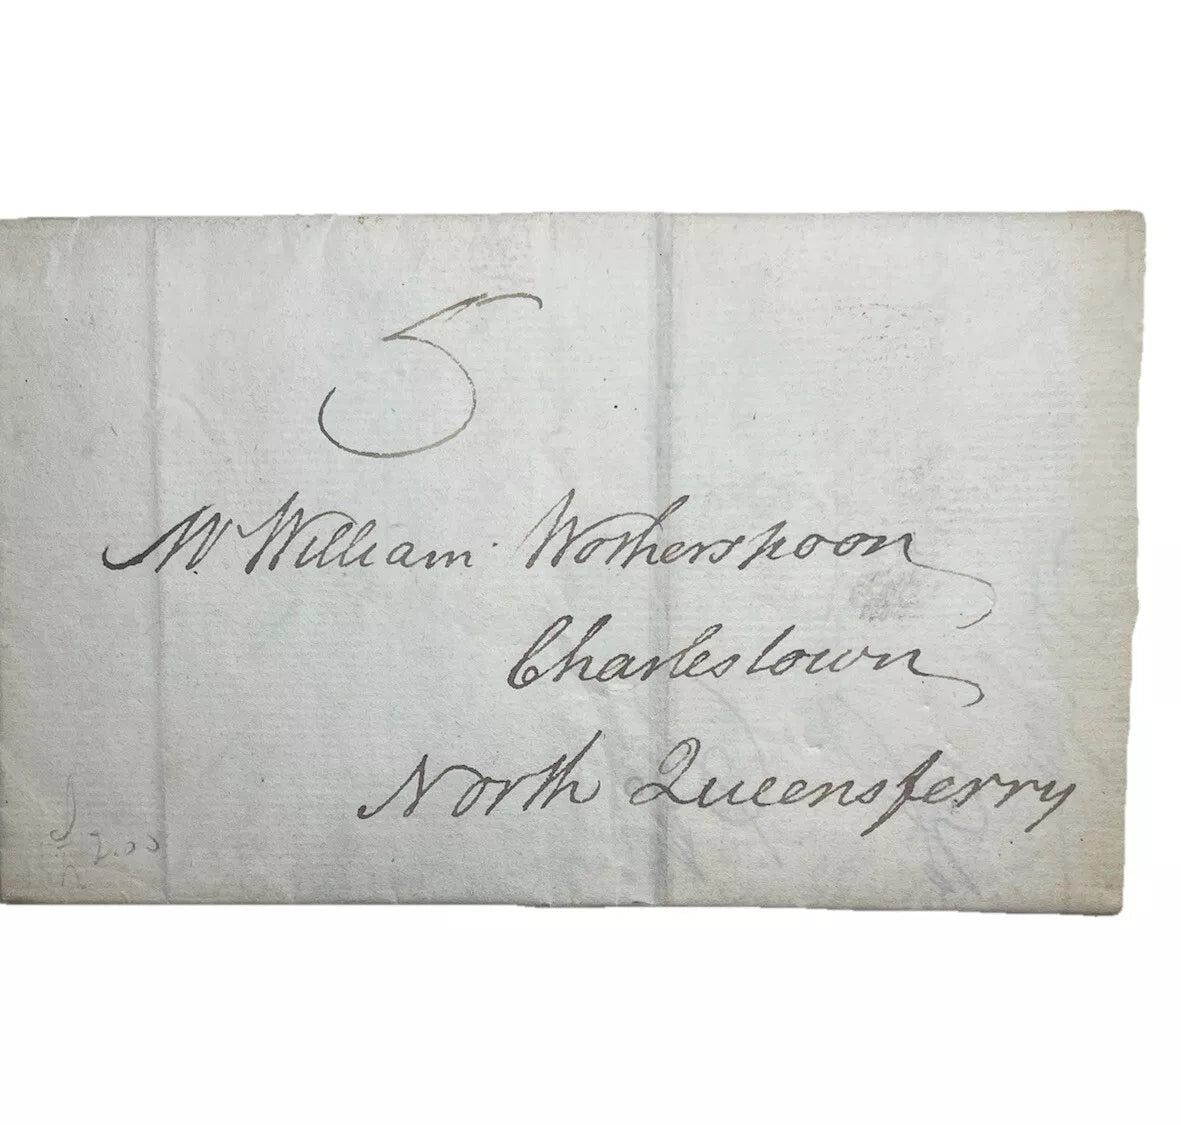 5
Mr. William Wotherspoon
Charlestown
North Queensferry
2.00